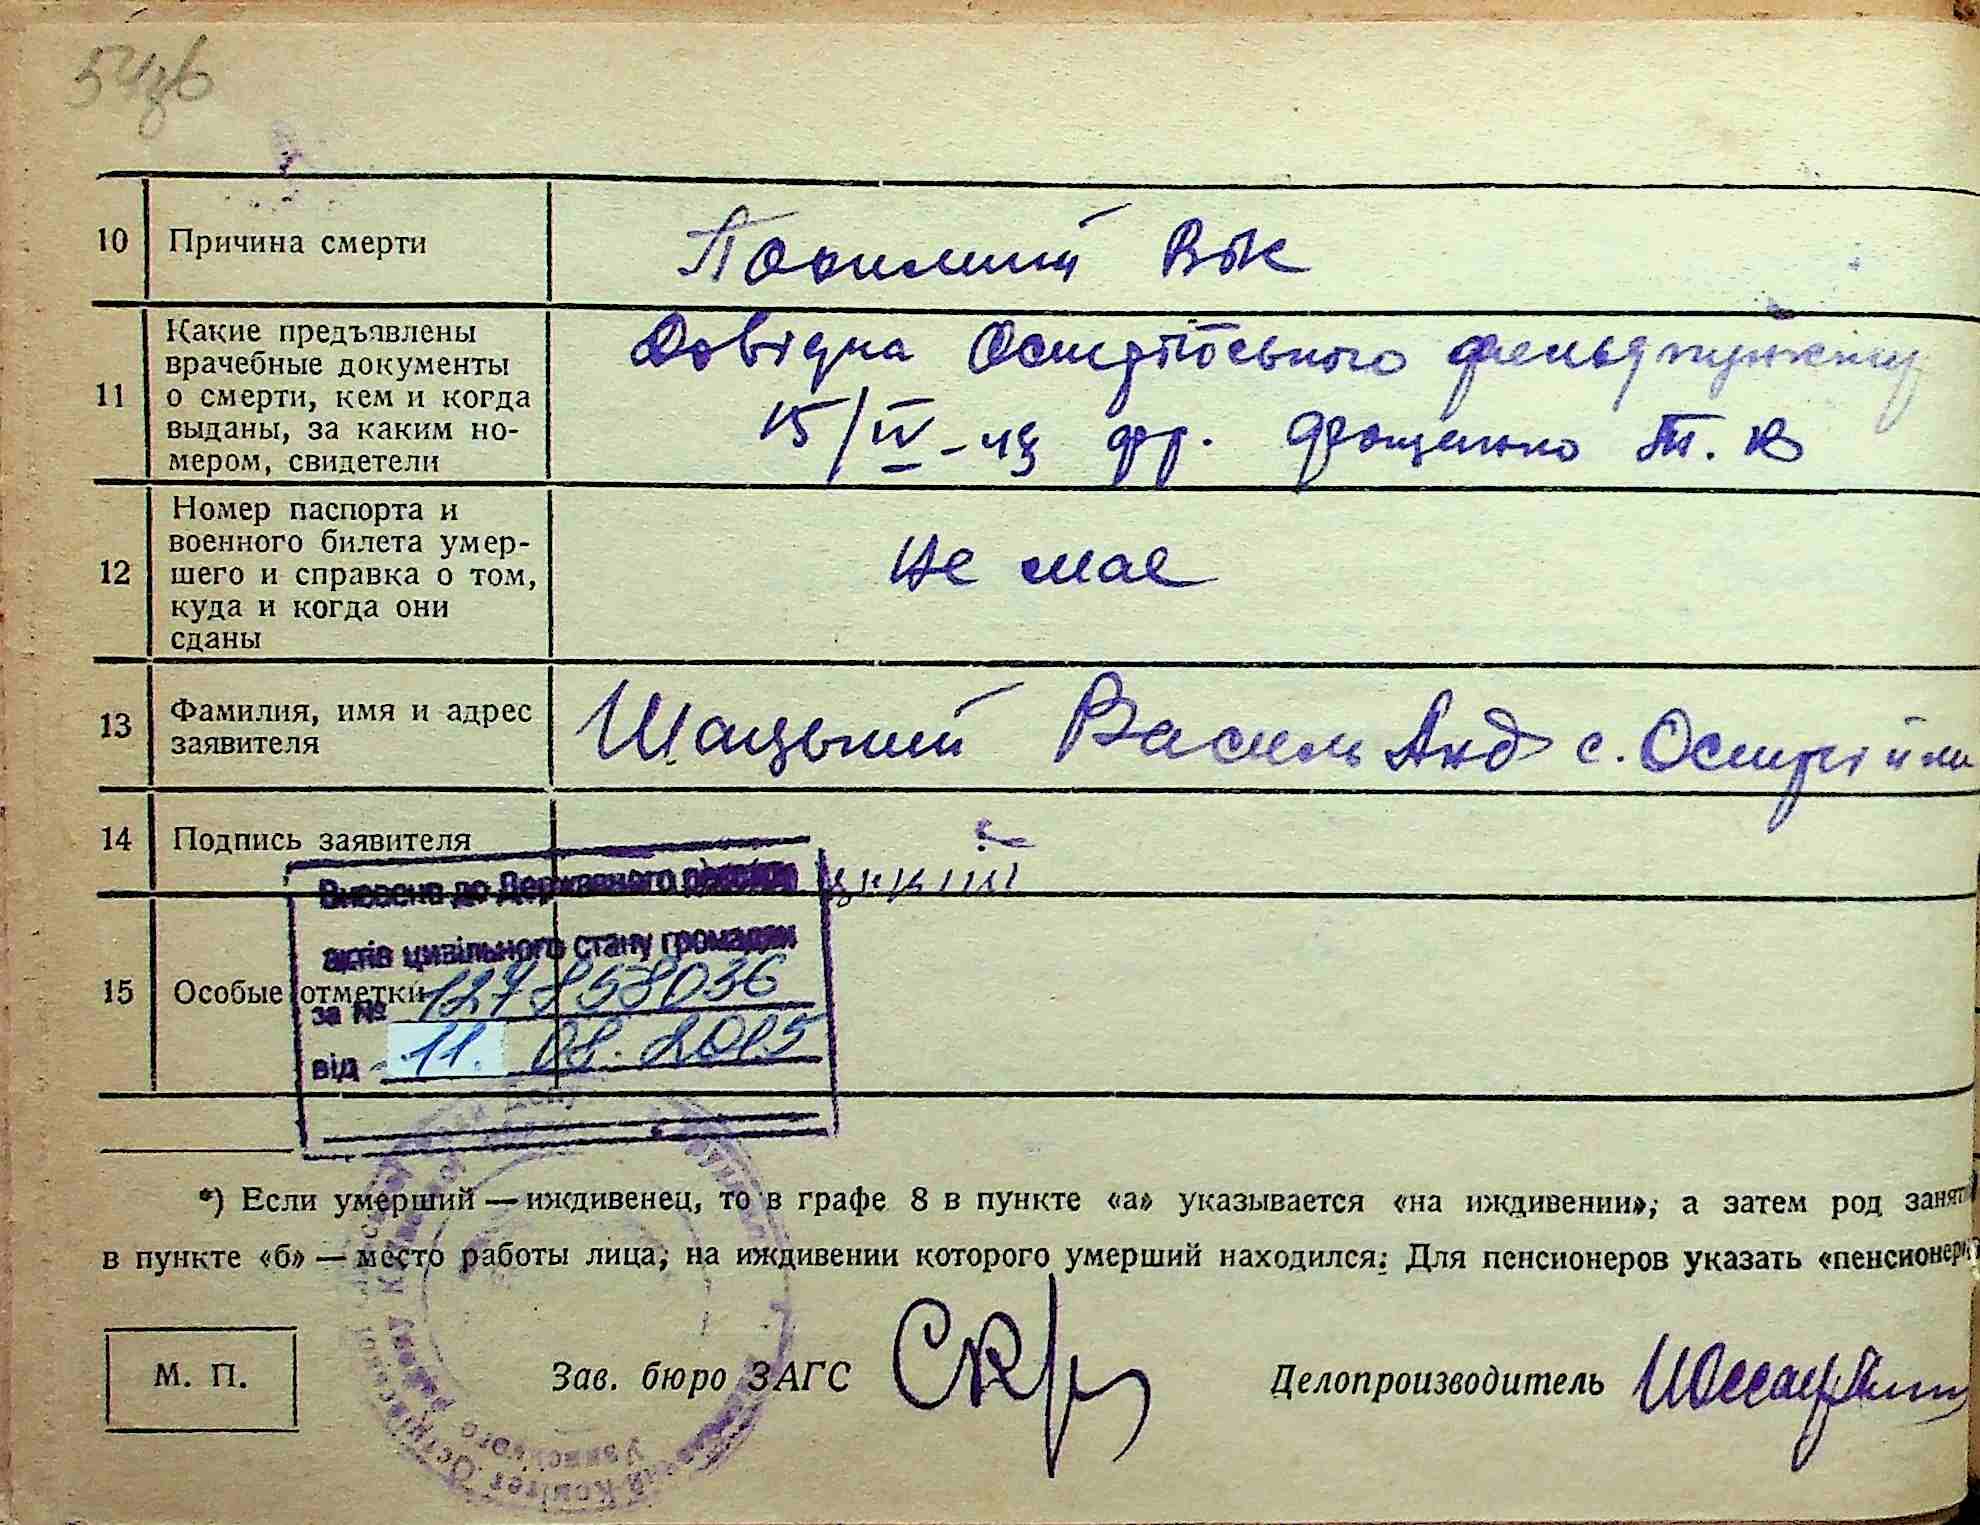 10 Причина смерти Похилий вік
11 Какие предъявлены
врачебные документы
о смерти, кем и когда
выданы, за каким но-
мером, свидетели
Довідка Острійського фельдпункту
15/IV-49 фр. Т. В
12 Номер паспорта и
военного билета умер-
шего и справка о том,
куда и когда они
сданы
Не має
13 Фамилия, имя и адрес
заявителя
Шацький Василь Анд с. Острійки
14 Подпись заявителя
15 Особые отметки
Внесено до Державного реєстру
актів цивільного стану громадян
за № 127858036
від 11. 08. 2015
*) Если умерший — иждивенец, то в графе 8 в пункте «а» указывается «на иждивении», а затем род занят
в пункте «б» — место работы лица, на иждивении которого умерший находился. Для пенсионеров указать «пенсионер»
М. П. Зав. бюро ЗАГС Делопроизводитель